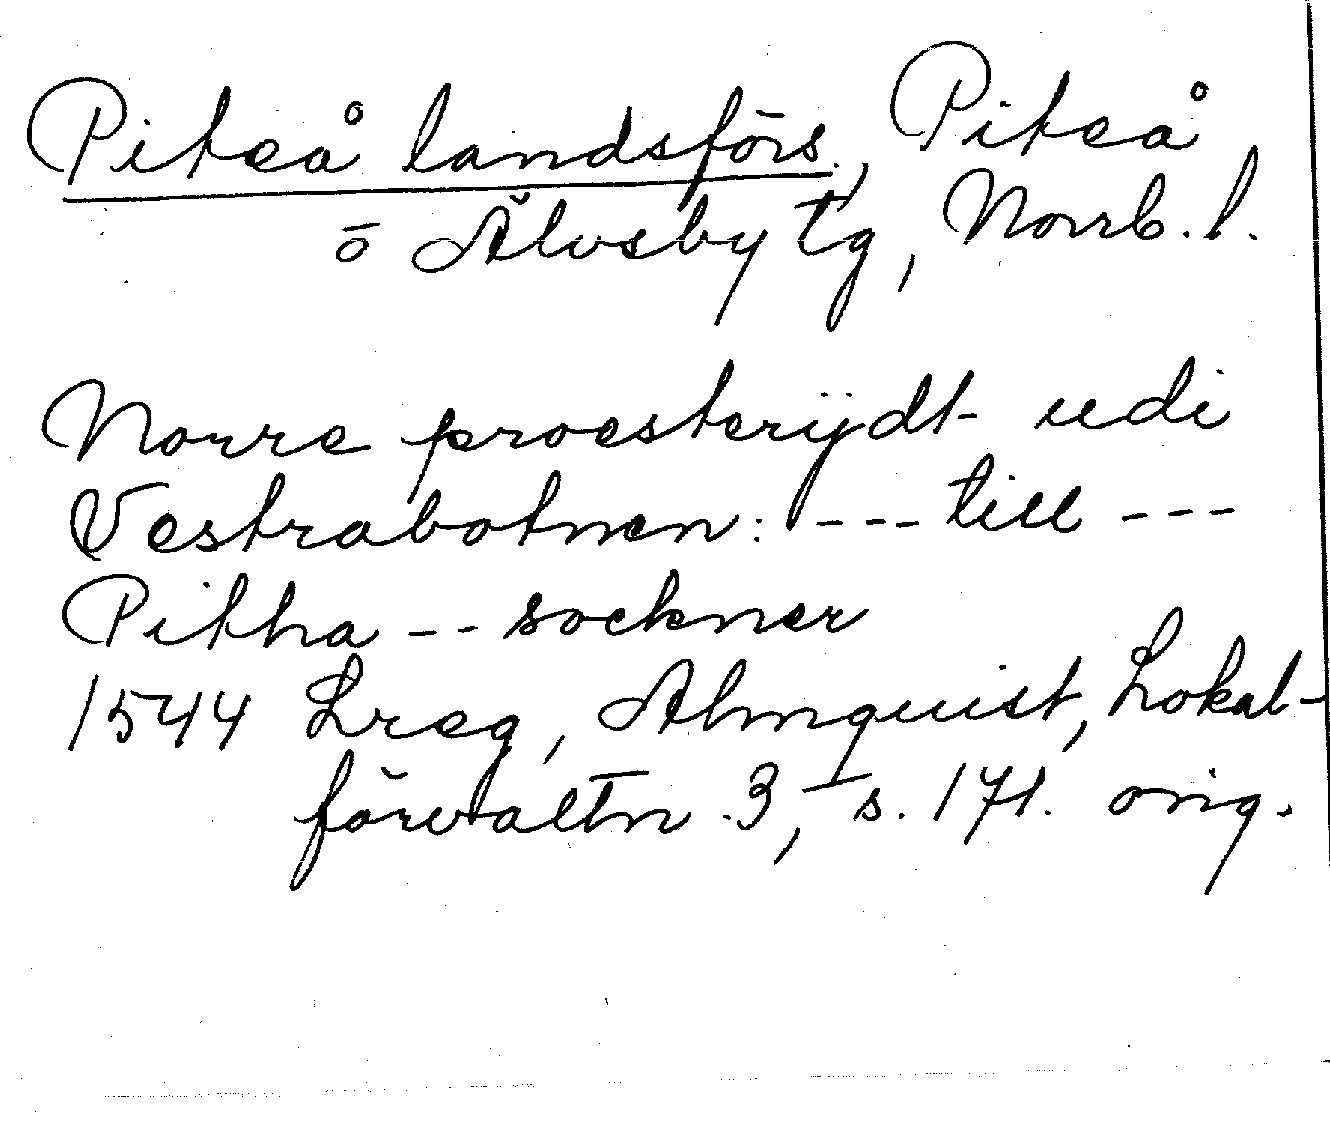 Piteå landsförs., Piteå
o Älvsby tg, Norrb. l.
Norre proesterijdt udi
Vestrabotnen: --- till ---
Pitha -- sockner
1544 Lreg, Almquist, Lokal-
förvaltn. 3, s. 171. orig.